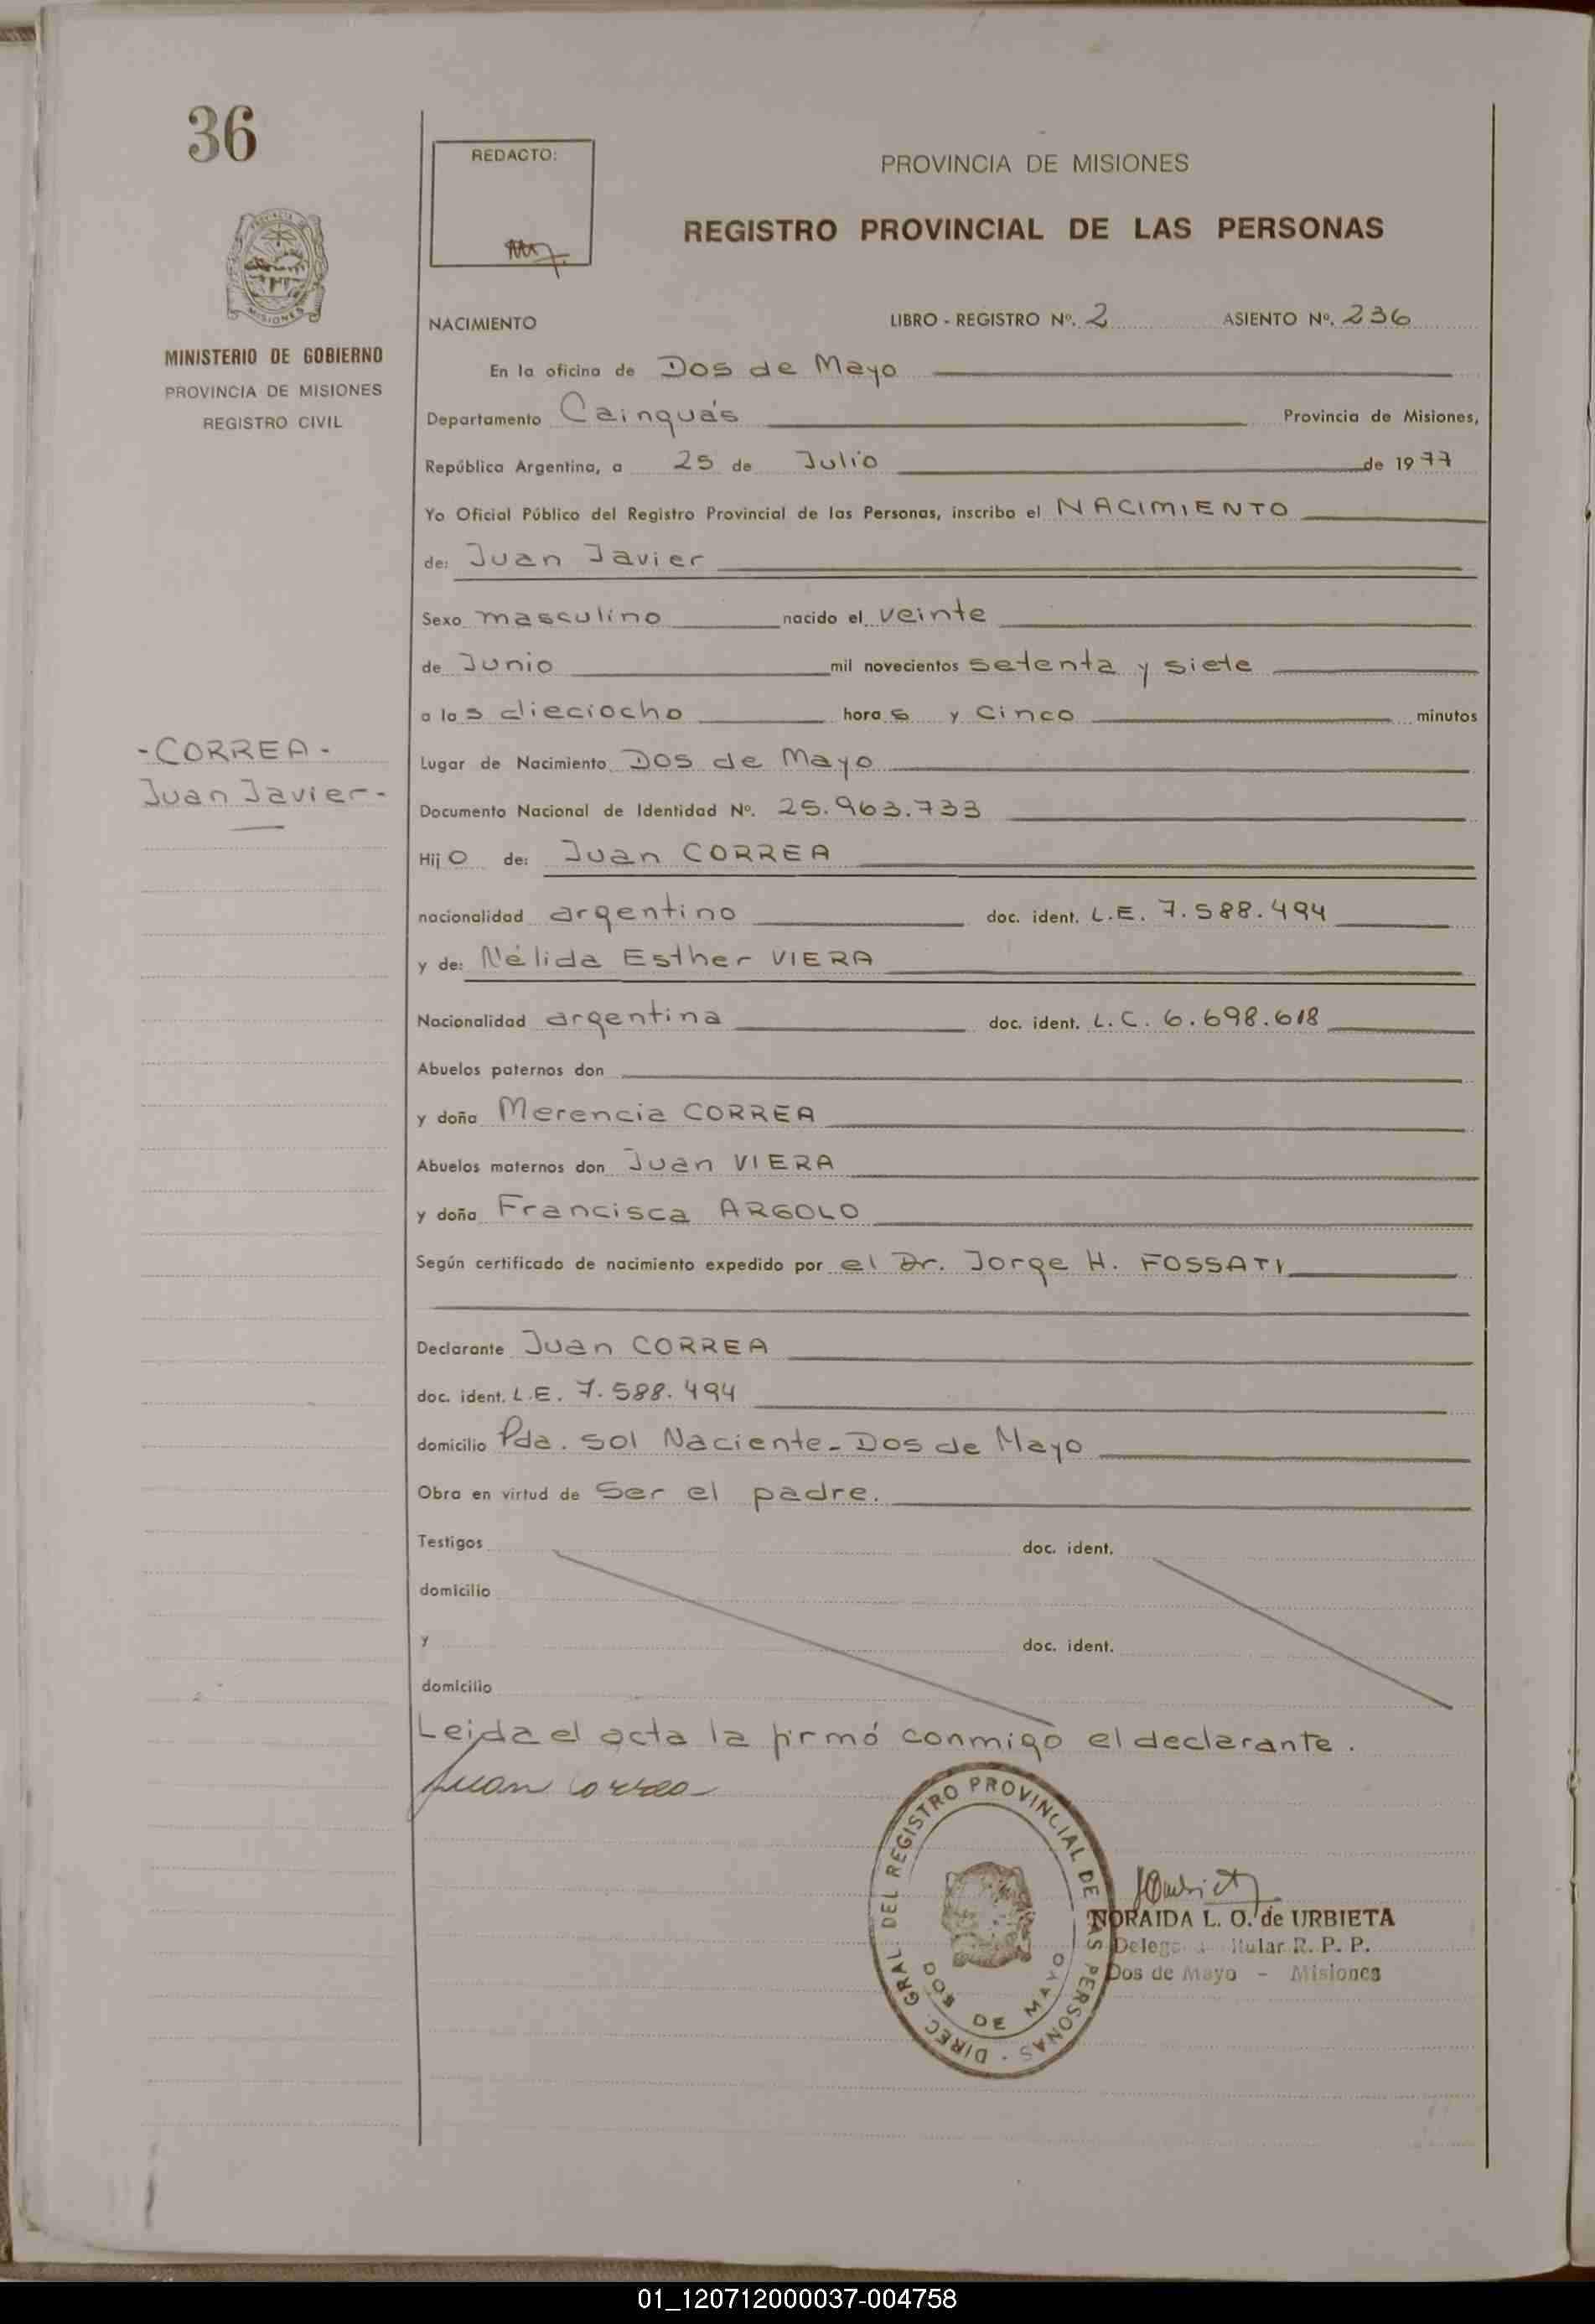 36
REDACTO:
PROVINCIA DE MISIONES
REGISTRO PROVINCIAL DE LAS PERSONAS
MISIONES
MINISTERIO DE GOBIERNO
PROVINCIA DE MISIONES
REGISTRO CIVIL
NACIMIENTO LIBRO - REGISTRO Nº. 2 ASIENTO Nº. 236
En la oficina de Dos de Mayo
Departamento Cainguás Provincia de Misiones,
República Argentina, a 25 de Julio de 1977
Yo Oficial Público del Registro Provincial de las Personas, inscribo el NACIMIENTO
de: Juan Javier
Sexo masculino nacido el veinte
de Junio mil novecientos setenta y siete
a las dieciocho horas y cinco minutos
- CORREA -
Juan Javier -
Lugar de Nacimiento Dos de Mayo
Documento Nacional de Identidad Nº. 25.963.733
Hijo de: Juan CORREA
nacionalidad argentino doc. ident. L.E. 7.588.494
y de: Nélida Esther VIERA
Nacionalidad argentina doc. ident. L.C. 6.698.618
Abuelos paternos don
y doña Merencia CORREA
Abuelos maternos don Juan VIERA
y doña Francisca ARGOLO
Según certificado de nacimiento expedido por el Dr. Jorge H. FOSSATI
Declarante Juan CORREA
doc. ident. L.E. 7.588.494
domicilio Pda. Sol Naciente - Dos de Mayo
Obra en virtud de Ser el padre.
Testigos doc. ident.
domicilio
y doc. ident.
domicilio
Leida el acta la firmó conmigo el declarante.
Juan Correa
DIREC. GRAL. DEL REGISTRO PROVINCIAL DE LAS PERSONAS -
DOS DE MAYO
NORAIDA L. O. de URBIETA
R. P. P.
Dos de Mayo - Misiones
01_120712000037-004758